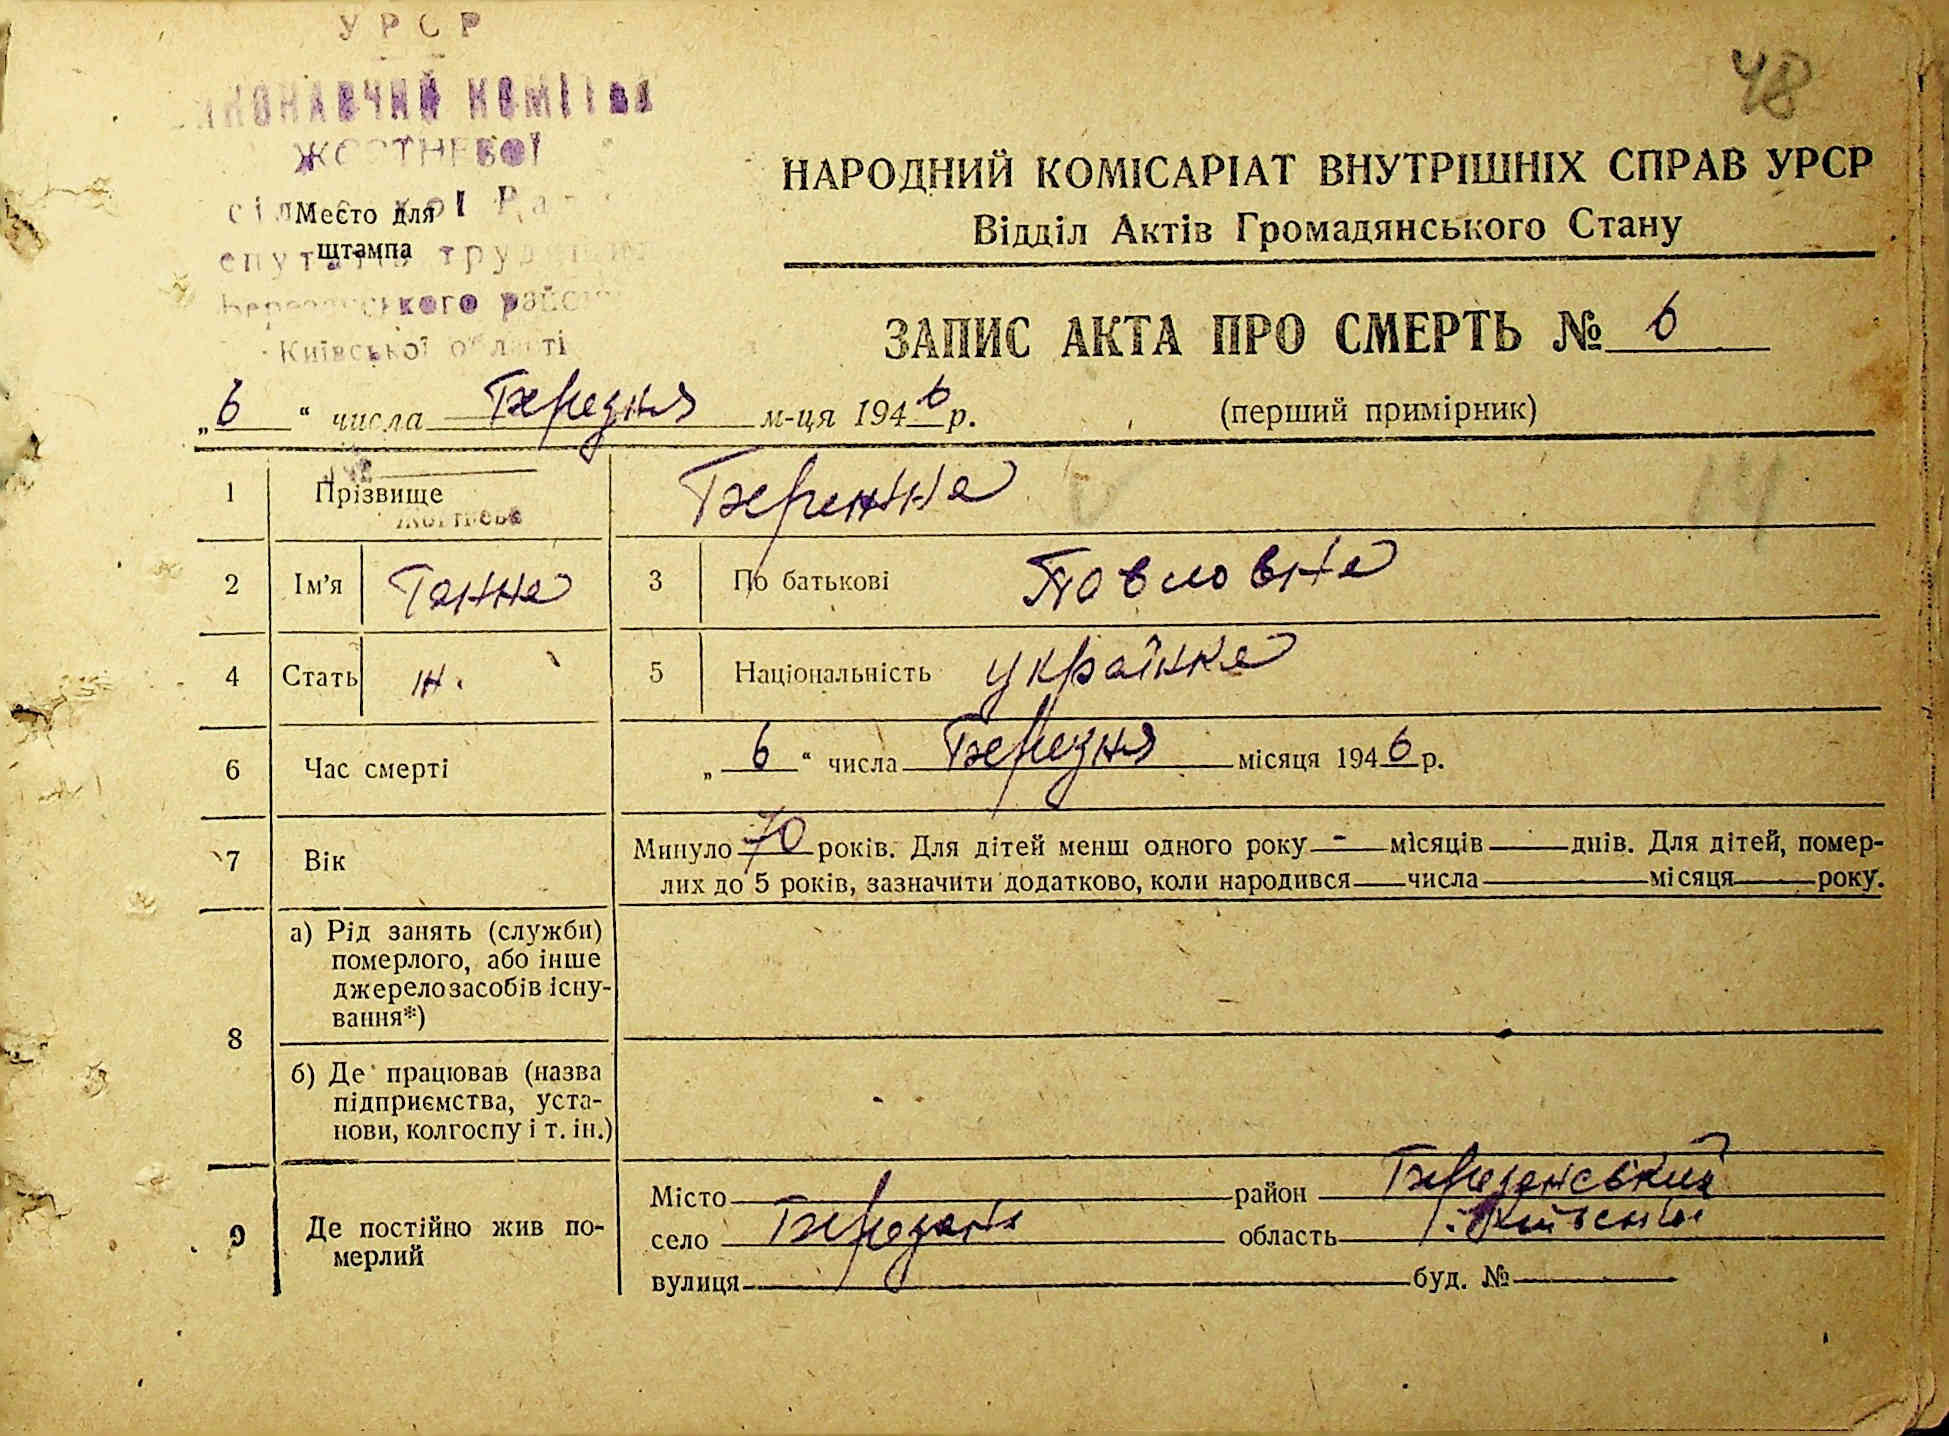 УРСР
48
ЖОВТНЕВОЇ
Место для
штампа
Київської області
НАРОДНИЙ КОМІСАРІАТ ВНУТРІШНІХ СПРАВ УРСР
Відділ Актів Громадянського Стану
ЗАПИС АКТА ПРО СМЕРТЬ № 6
„6“ числа Березня м-ця 1946 р.
(перший примірник)
1 Прізвище
14
2 Ім’я Ганна 3 По батькові Павловна
4 Стать ж. 5 Національність українка
6 Час смерті „6“ числа Березня місяця 1946 р.
7 Вік Минуло 70 років. Для дітей менш одного року - місяців днів. Для дітей, помер-
лих до 5 років, зазначити додатково, коли народився числа місяця року.
8 а) Рід занять (служби)
померлого, або інше
джерело засобів існу-
вання*)
б) Де працював (назва
підприємства, уста-
нови, колгоспу і т. ін.)
9 Де постійно жив по-
мерлий
Місто район Березанський
село Березань область Київська
вулиця буд. №